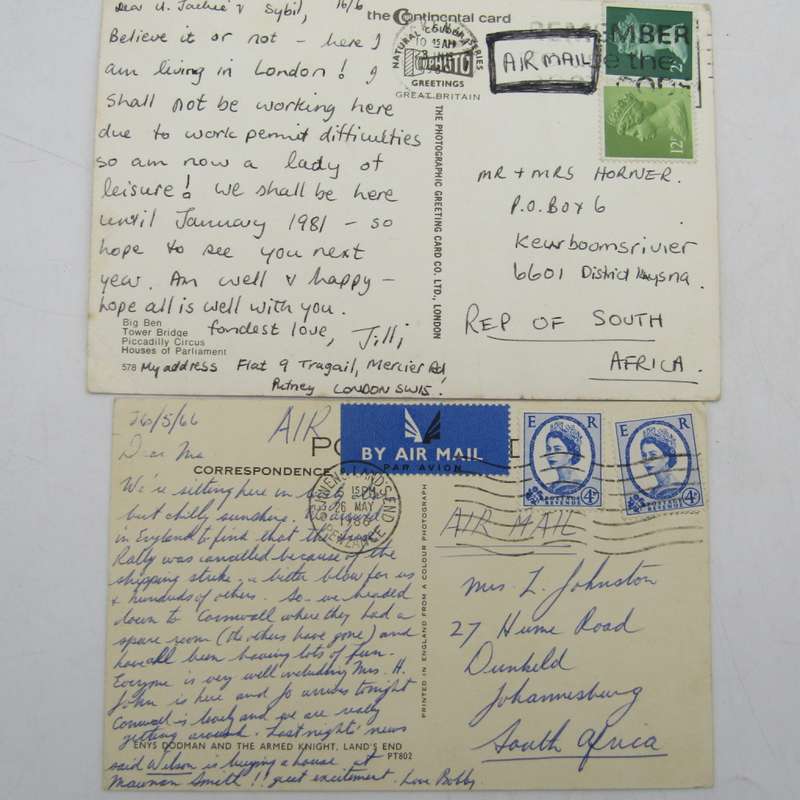 Dear U. Jackie & Sybil, 16/6
Believe it or not - here I
am living in London! I
shall not be working here
due to work permit difficulties
so am now a lady of
leisure! We shall be here
until January 1981 - so
hope to see you next
year. Am well & happy -
hope all is well with you.
fondest love, Jilli
Big Ben
Tower Bridge
Piccadilly Circus
Houses of Parliament
578 My address Flat 9 Tragail, Mercier Rd
Putney LONDON SW15.
the Continental card
NATURAL COLOUR SERIES
PHOTO
GREETINGS
GREAT BRITAIN
10 15 AM
THE PHOTOGRAPHIC GREETING CARD CO. LTD., LONDON
AIR MAIL
REMEMBER
the
12P
MR + MRS HORNER.
P.O. BOX 6
Keurboomsrivier
6601 District Knysna.
REP OF SOUTH
AFRICA.
26/5/66
AIR
Dear Ma
BY AIR MAIL
PAR AVION
CORRESPONDENCE
We're sitting here in
but chilly sunshine.
in England to find that the
Rally was cancelled because of the
shipping strike, a bitter blow for us
& hundreds of others. So we headed
down to Cornwall where they had a
spare room (the others have gone) and
have all been having lots of fun.
Everyone is very well including Mrs. H.
John is here and Jo arrives tonight
Cornwall is lovely and we are really
getting around. Last night's news
ENYS DODMAN AND THE ARMED KNIGHT, LAND'S END
PT802
said Wilson is buying a house at
Mawnan Smith!! great excitement. Love Bobby.
LAND'S END
15 PM
26 MAY
1966
PENZANCE
PRINTED IN ENGLAND FROM A COLOUR PHOTOGRAPH
E R
4D
POSTAGE REVENUE
E R
4D
POSTAGE REVENUE
AIR MAIL
Mrs. L. Johnston
27 Hume Road
Dunkeld
Johannesburg
South Africa